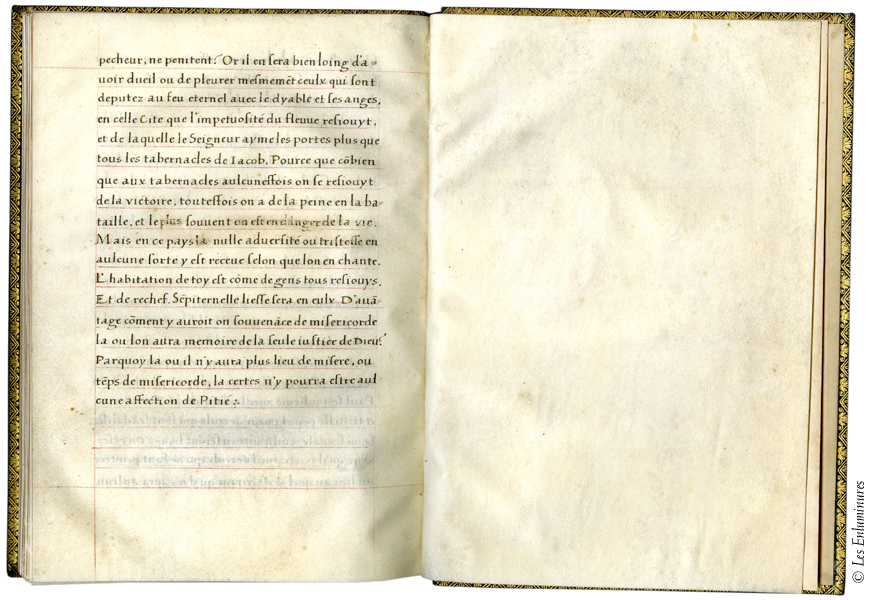 pecheur, ne penitent? Or il en sera bien loing d'a=
uoir dueil ou de pleurer mesmemēt ceulx qui sont
deputez au feu eternel auec le dyable et ses anges,
en celle Cite que l'impetuosité du fleuue resiouyt,
et de laquelle le Seigneur ayme les portes plus que
tous les tabernacles de Iacob. Pource que cōbien
que aux tabernacles aulcuneffois on se resiouyt
de la victoire, touteffois on a de la peine en la ba=
taille, et le plus souuent on est en dāger de la vie.
Mais en ce pays la nulle aduersité ou tristesse en
aulcune sorte y est receue selon que lon en chante.
L'habitation de toy est cōme de gens tous resiouys.
Et de rechef. Sēpiternelle liesse sera en eulx. D'auā=
tage cōment y auroit on souuenāce de misericorde
la ou lon aura memoire de la seule iustice de Dieu?
Parquoy la ou il n'y aura plus lieu de misere, ou
tēps de misericorde, la certes n'y pourra estre aul
cune affection de Pitié:
© Les Enluminures